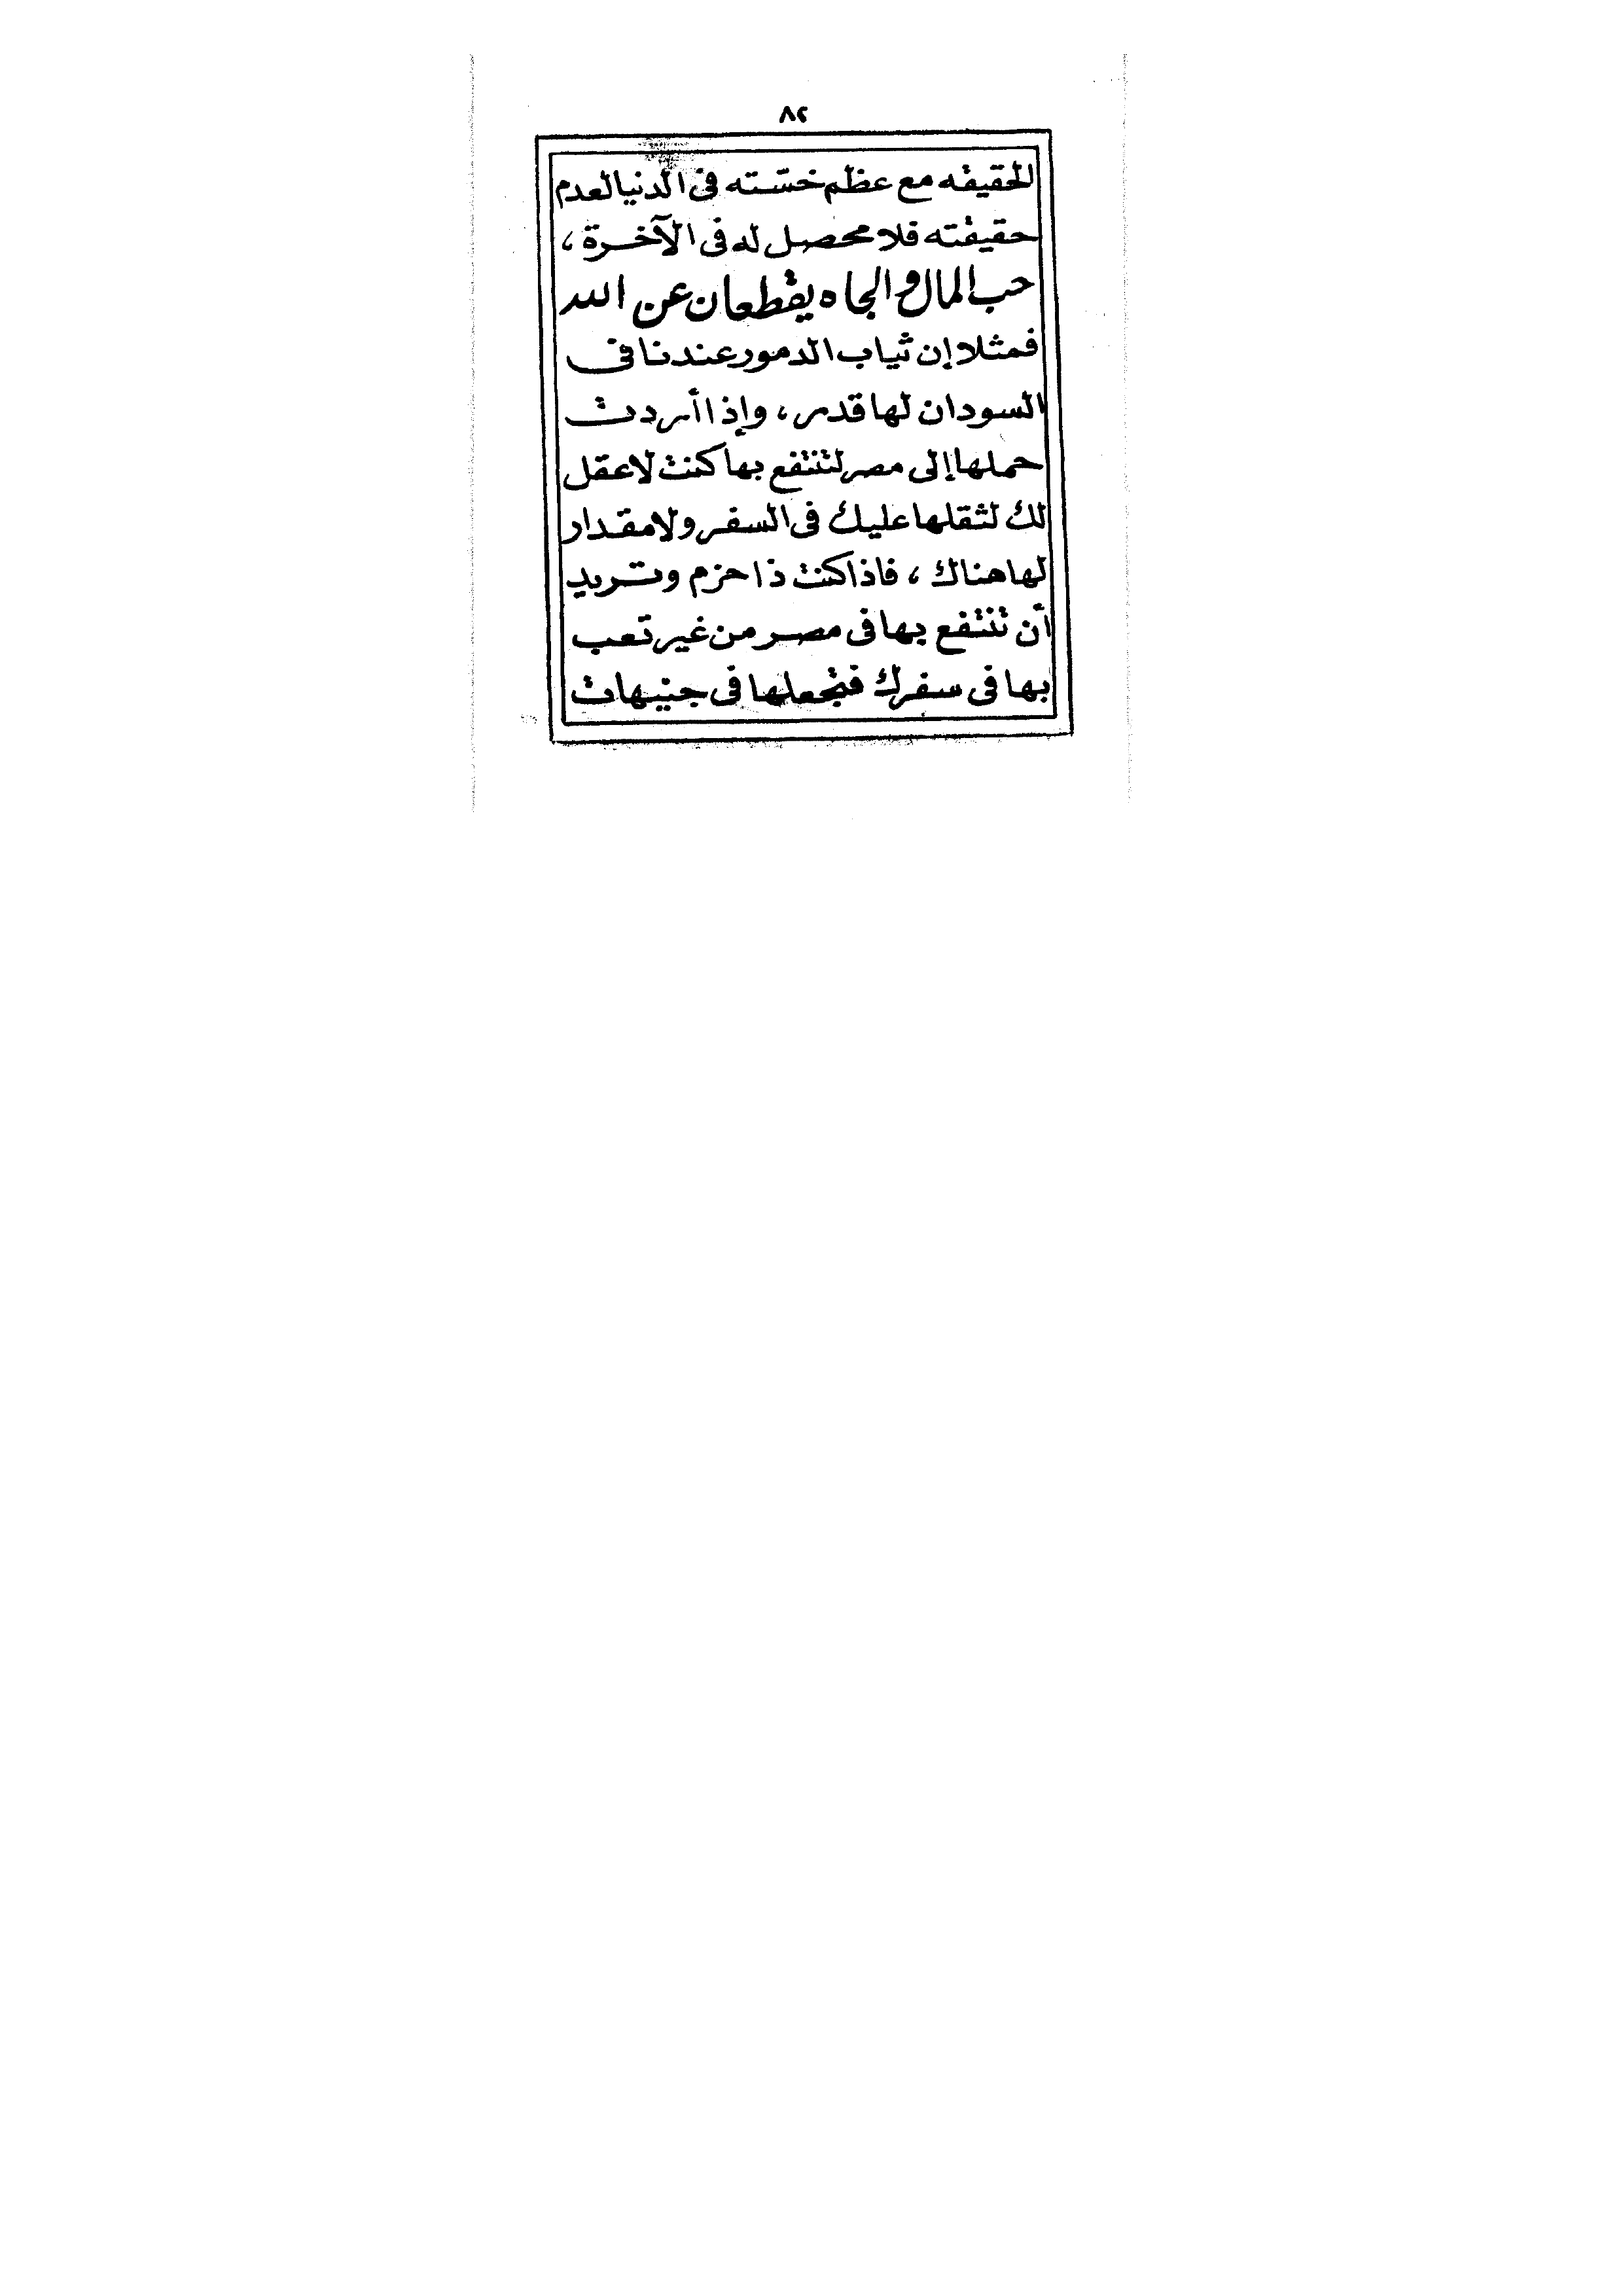 ٨٢
للحقيقه مع عظم خسّته فى الدنيا لعدم
حقيقته فلا محصل له فى الآخرة ،
حب المال والجاه يقطعان عن الله
فمثلا إن ثياب الدمور عندنا فى
السودان لها قدر ، وإذا أردت
حملها إلى مصر لتنتفع بها كنت لا عقل
لك لثقلها عليك فى السفر ولا مقدار
لها هناك ، فاذا كنت ذا حزم وتريد
أن تنتفع بها فى مصر من غير تعب
بها فى سفرك فتجعلها فى جنيهات